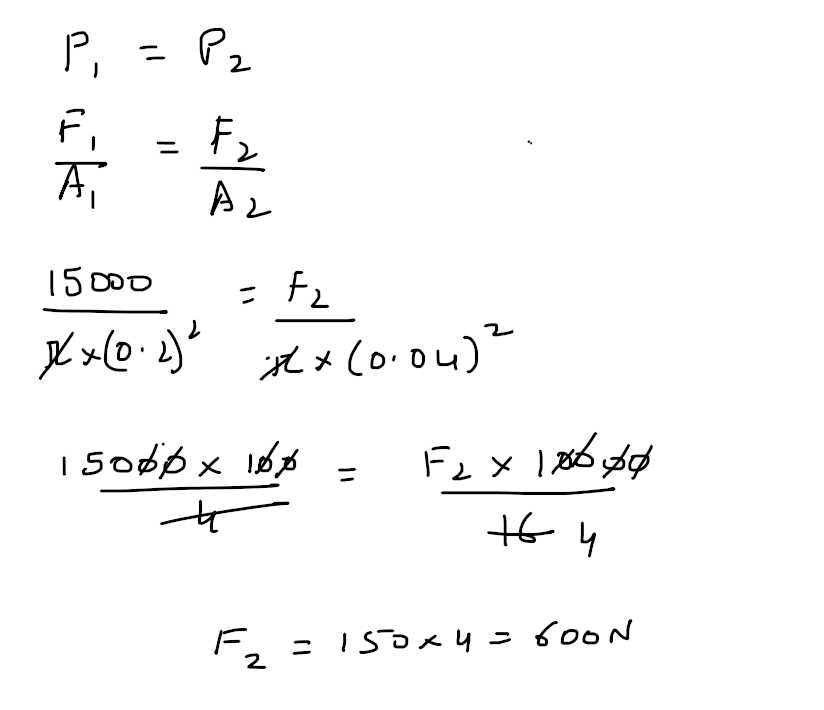 P₁ = P₂
F₁/A₁ = F₂/A₂
15000/π×(0.2)² = F₂/π×(0.04)²
15000 × 100/4 = F₂ × 10000/16 4
F₂ = 150×4 = 600N